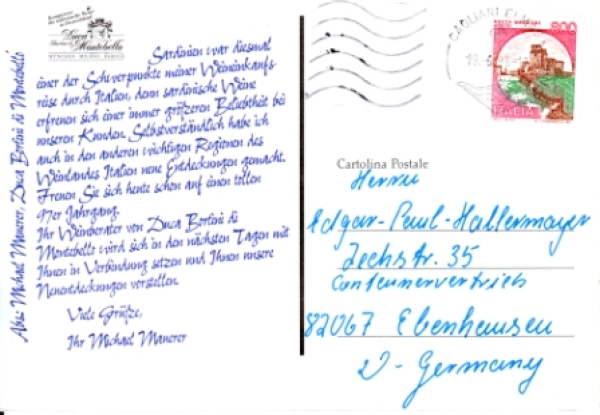 Duca
Bortini di
Montebello
MÜNCHEN MILANO
Sardinien war diesmal
einer der Schwerpunkte meiner Weineinkaufs-
reise durch Italien, denn sardinische Weine
erfreuen sich einer immer größeren Beliebtheit bei
unseren Kunden. Selbstverständlich habe ich
auch in den anderen wichtigen Regionen des
Weinlandes Italien neue Entdeckungen gemacht.
Freuen Sie sich heute schon auf einen tollen
97er Jahrgang.
Ihr Weinberater von Duca Bortini di
Montebello wird sich in den nächsten Tagen mit
Ihnen in Verbindung setzen und Ihnen unsere
Neuentdeckungen vorstellen.
Viele Grüße,
Ihr Michael Maurer
Abs: Michael Maurer, Duca Bortini di Montebello
CAGLIARI
800
ITALIA
Cartolina Postale
Herrn
Edgar-Paul-Hallermayer
Zechstr. 35
82067 Ebenhausen
D-Germany